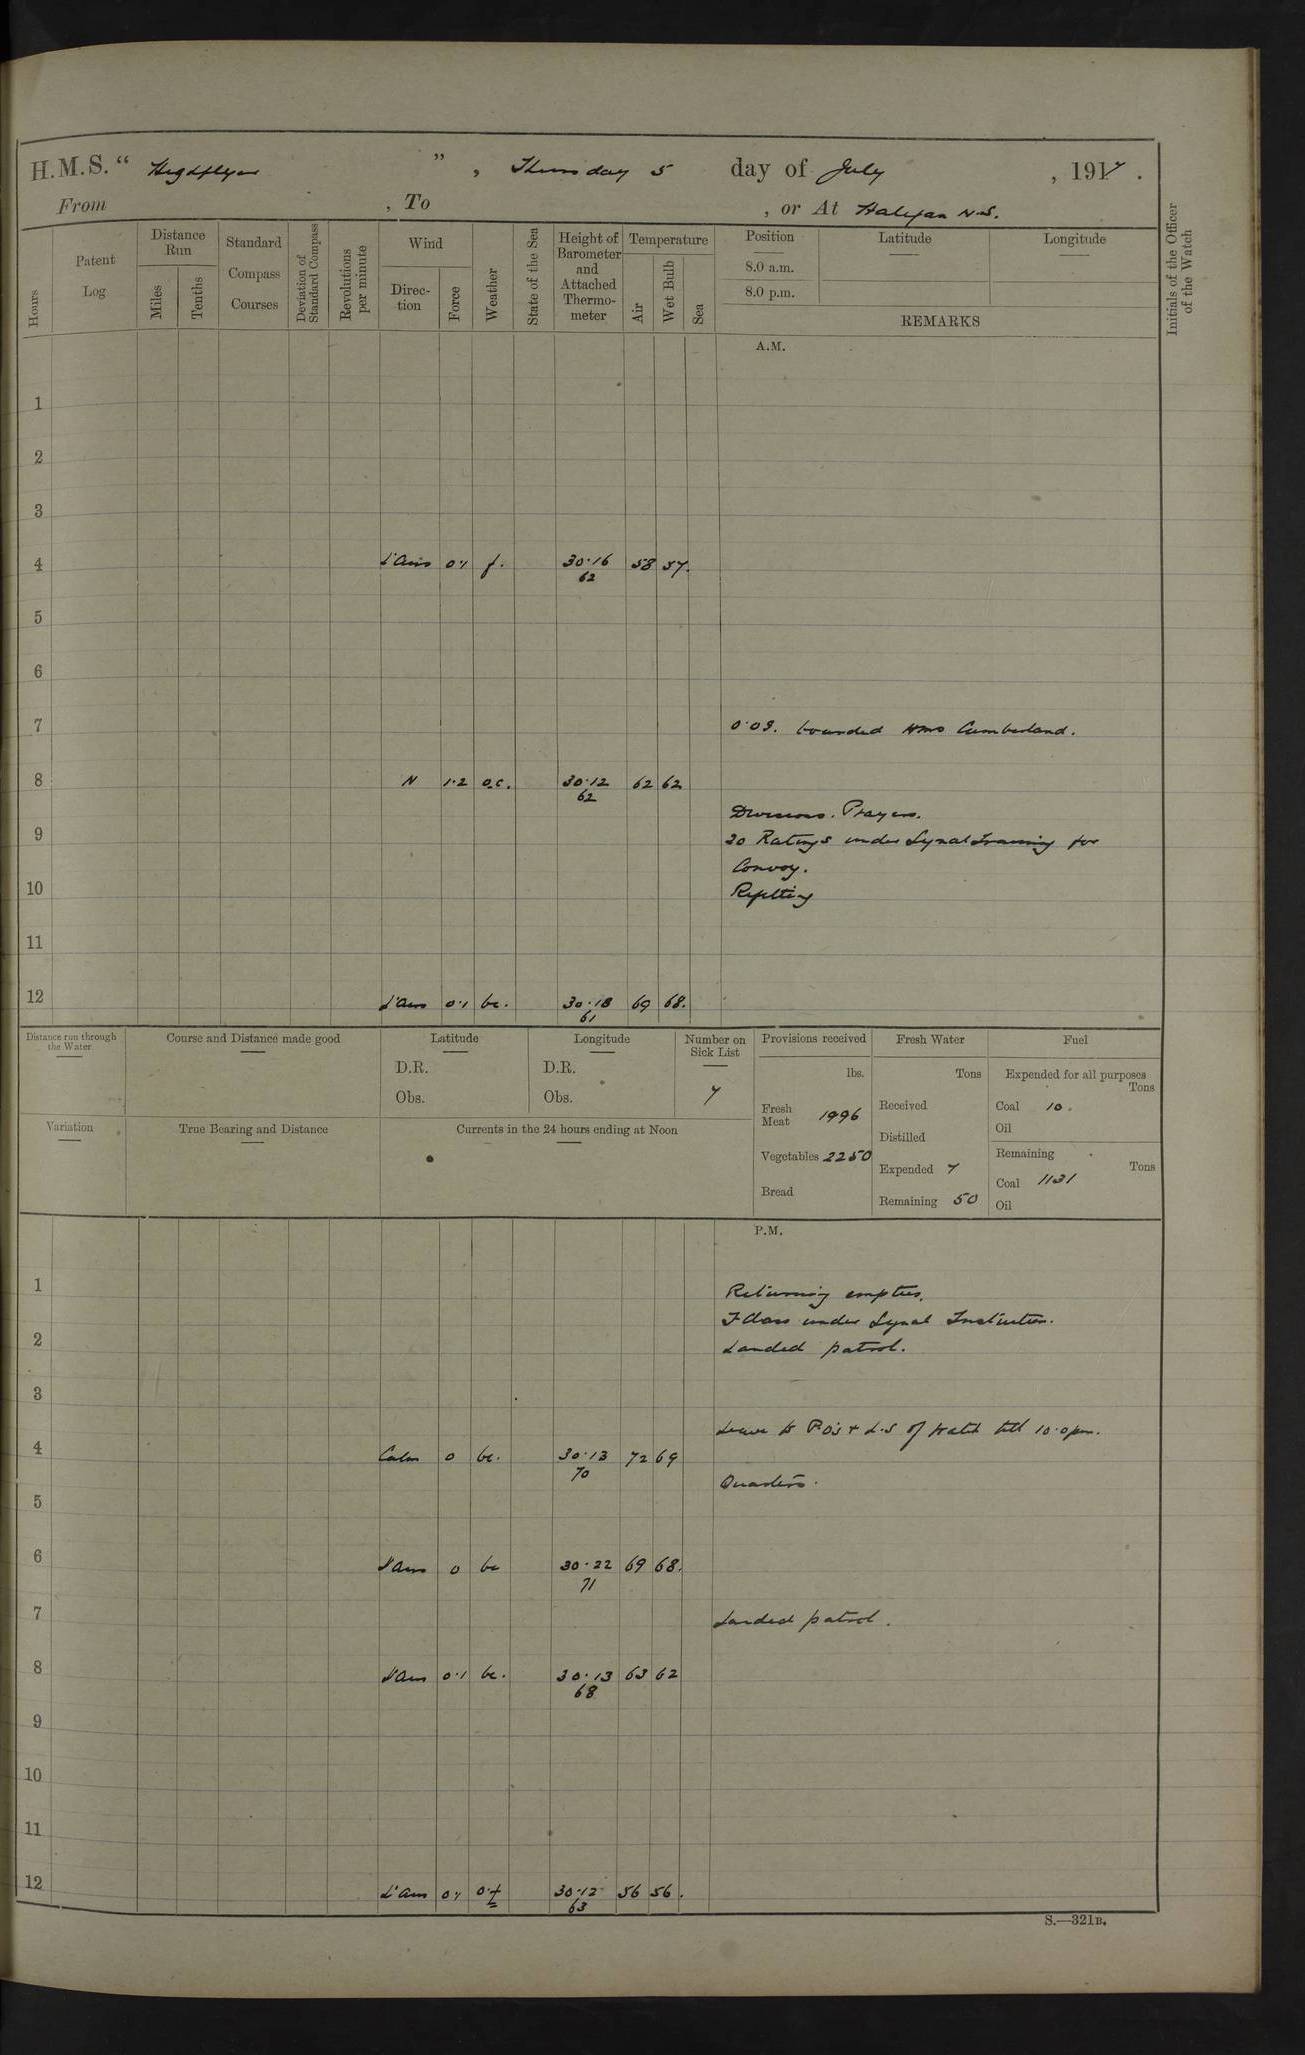 H.M.S. “ Highflyer ”, Thursday 5 day of July, 1917.
From , To , or At Halifax N.S.
Hours
Patent Log
Distance Run
Miles
Tenths
Standard Compass Courses
Deviation of Standard Compass
Revolutions per minute
Wind
Direction
Force
Weather
State of the Sea
Height of Barometer and Attached Thermometer
Temperature
Air
Wet Bulb
Sea
Position
8.0 a.m.
8.0 p.m.
Latitude
Longitude
REMARKS
Initials of the Officer of the Watch
A.M.
1
2
3
4 L'Airs 0.1 f. 30.16 62 58 57.
5
6
7 0.0 S. bounded HMS Cumberland.
8 N 1.2 o.c. 30.12 62 62 62
Divisions. Prayers.
9 20 Ratings under Signal Training for
Convoy.
10 Refitting
11
12 L'Airs 0.1 bc. 30.18 61 69 68.
Distance run through the Water
Course and Distance made good
Latitude
D.R.
Obs.
Longitude
D.R.
Obs.
Number on Sick List
7
Provisions received
lbs.
Fresh Meat 1996
Vegetables 2250
Bread
Fresh Water
Tons
Received
Distilled
Expended 7
Remaining 50
Fuel
Expended for all purposes
Tons
Coal 10.
Oil
Remaining
Tons
Coal 1131
Oil
Variation
True Bearing and Distance
Currents in the 24 hours ending at Noon
P.M.
1 Returning empties.
T Class under Signal Instruction.
2 Landed patrol.
3
Leave to P.O's & L.S of watch till 10.0 pm.
4 Calm 0 bc. 30.13 70 72 69
Quarters.
5
6 L'Airs 0 bc 30.22 71 69 68.
7 Landed patrol.
8 L'Airs 0.1 bc. 30.13 68 63 62
9
10
11
12 L'Airs 0.1 o.f 30.12 63 56 56.
S.—321B.